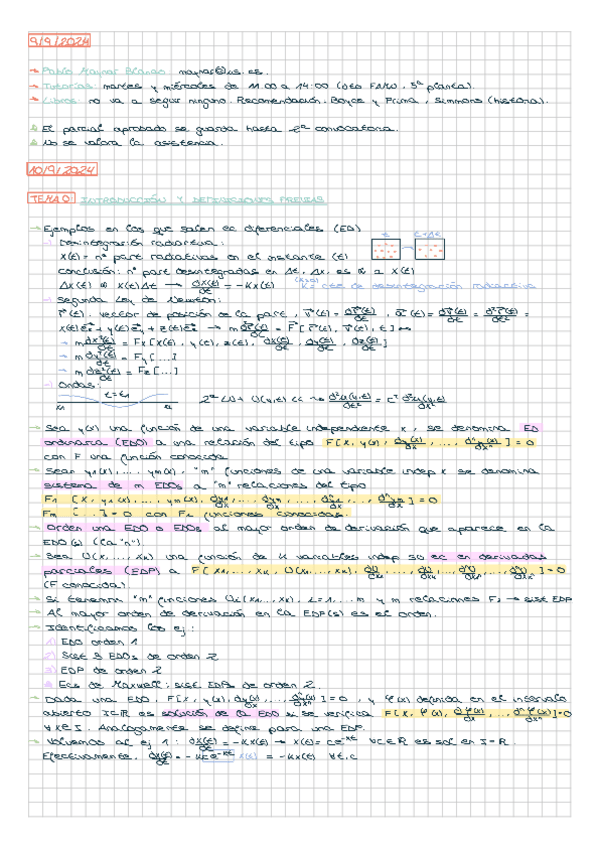 9/9/2024
→ Pablo Maynar Blanco. maynar@us.es.
→ Tutorías: martes y miércoles de 11:00 a 14:00 (5ª planta).
→ Libros: no va a seguir ninguno. Recomendación: Boyce y Prima, Simmons (historia).
El parcial aprobado se guarda hasta 2ª convocatoria.
No se valora la asistencia.
10/9/2024
TEMA 0: INTRODUCCIÓN Y DEFINICIONES PREVIAS
→ Ejemplos en los que salen ec diferenciales (ED)
→) Desintegración radiactiva: t t+Δt
X(t) = nº part radiactivas en el instante (t)
conclusión: nº part desintegradas en Δt, Δx, es α a X(t)
ΔX(t) α X(t)Δt → dX(t)/dt = -KX(t) (K>0) K = cte de desintegración radiactiva
→) Segunda Ley de Newton:
r⃗(t). vector de posición de la part, v⃗(t) = dr⃗(t)/dt, a⃗(t) = dv⃗(t)/dt = d²r⃗(t)/dt² =
x(t)e⃗x + y(t)e⃗y + z(t)e⃗z → m d²r⃗(t)/dt² = F⃗[r⃗(t), v⃗(t), t] ↔
→ m d²x(t)/dt² = Fx[x(t), y(t), z(t), dx(t)/dt, dy(t)/dt, dz(t)/dt]
→ m d²y(t)/dt² = Fy[...]
→ m d²z(t)/dt² = Fz[...]
→) Ondas:
t=t1 2ª LN + U(x,t) << → ∂²U(x,t)/∂t² = c² ∂²U(x,t)/∂x²
→ Sea y(x) una función de una variable independiente x, se denomina ED
ordinaria (EDO) a una relación del tipo F[x, y(x), dy(x)/dx, ..., dⁿy(x)/dxⁿ] = 0
con F una función conocida
→ Sean y1(x), ..., ym(x), "m" funciones de una variable indep x se denomina
sistema de m EDOs a "m" relaciones del tipo
F1 [x, y1(x), ..., ym(x), dy1/dx, ..., dym/dx, ..., dⁿy1/dxⁿ, ..., dⁿym/dxⁿ] = 0
Fm [...] = 0 con Fi funciones conocidas.
→ Orden una EDO o EDOs al mayor orden de derivación que aparece en la
EDO(s) (la "n").
→ Sea U(x1, ..., xk) una función de k variables indep so ec en derivadas
parciales (EDP) a F[x1, ..., xk, U(x1, ..., xk), ∂U/∂x1, ..., ∂U/∂xk, ..., ∂ⁿU/∂xkⁿ] = 0
(F conocida)
→ Si tenemos "m" funciones Ui(x1, ..., xk), i=1, ..., m y m relaciones Fi → sist EDP
→ Al mayor orden de derivación en la EDP(s) es el orden.
→ Identificamos los ej:
1) EDO orden 1
2) Sist 3 EDOs de orden 2
3) EDP de orden 2
Ecs de Maxwell: sist EDPs de orden 2.
→ Dada una EDO, F[x, y(x), dy(x)/dx, ..., dⁿy(x)/dxⁿ] = 0, y φ(x) definida en el intervalo
abierto I⊂R es solución de la EDO si se verifica F[x, φ(x), dφ(x)/dx, ..., dⁿφ(x)/dxⁿ] = 0
∀x∈I. Análogamente se define para una EDP.
→ Volvemos al ej 1: dX(t)/dt = -KX(t) → X(t) = ce^-Kt ∀c∈R es sol en I = R.
Efectivamente, dX(t)/dt = -Kce^-Kt X(t) = -KX(t) ∀t,c